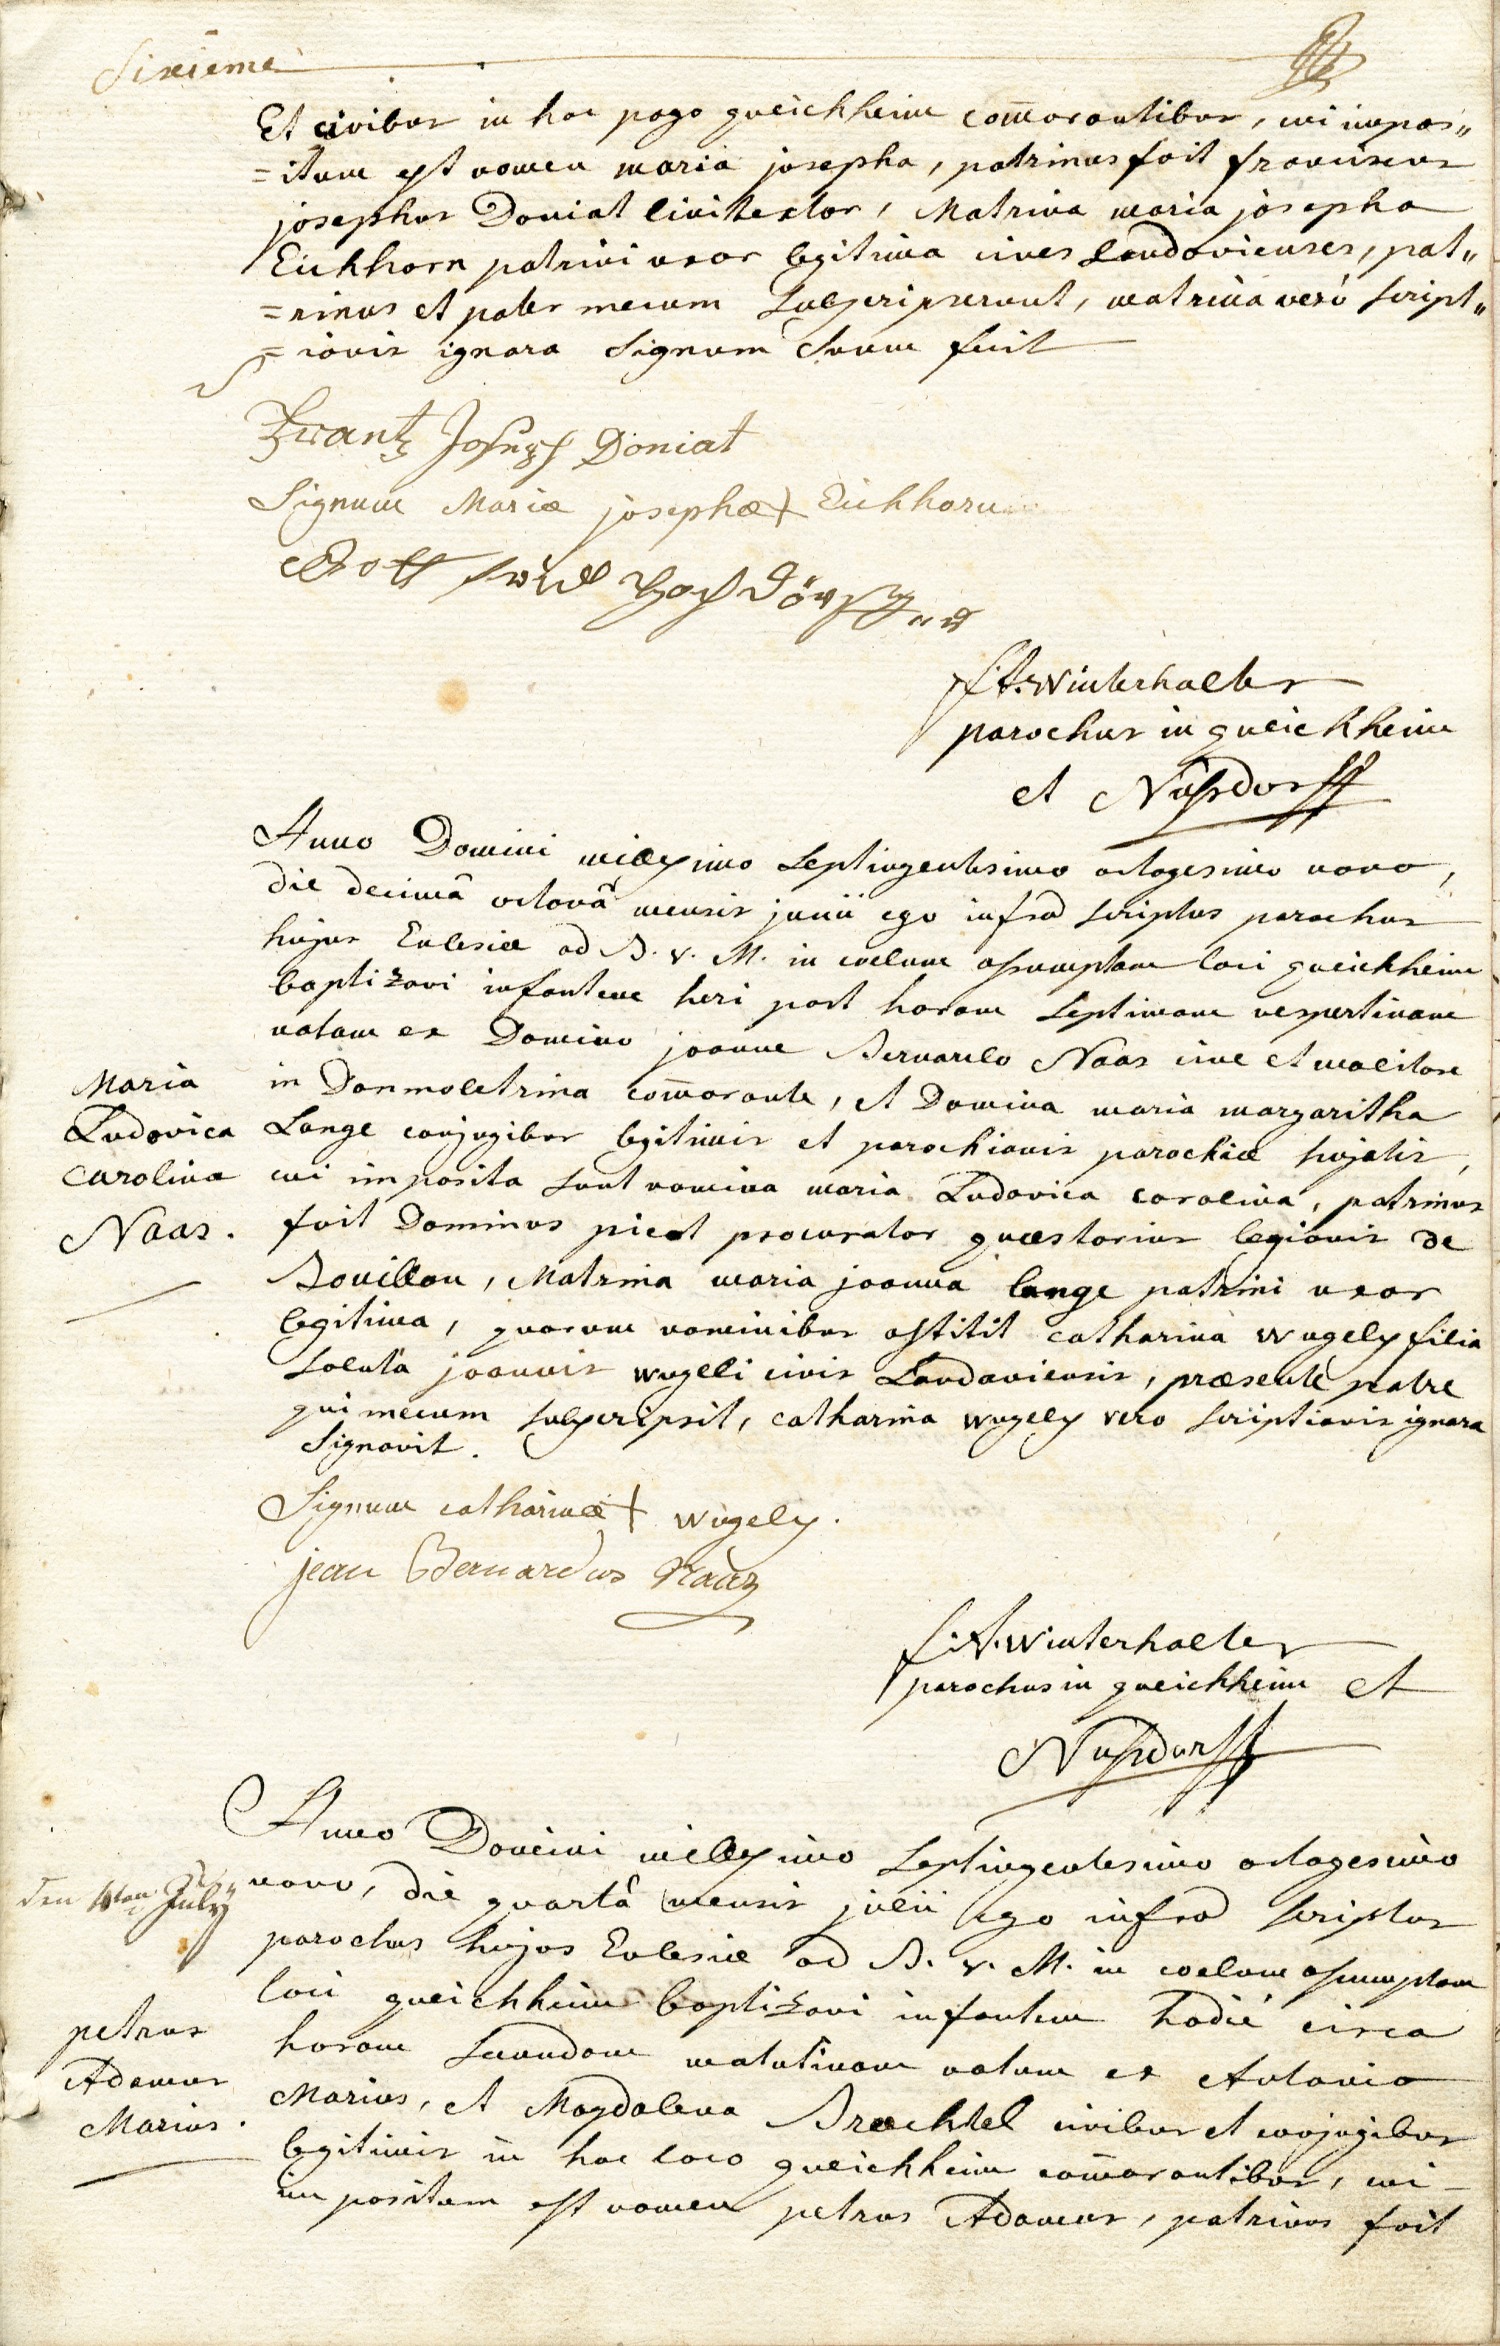 Sixieme
Et civibus in hoc pago queichheim com̄orantibus, cui impos„
=itum est nomen maria josepha, patrinus fuit franciscus
josephus Doniat linitextor, Matrina maria josepha
Eichhorn patrini uxor legitima cives Landavienses, pat„
=rinus et pater mecum subscripserunt, matrina verò script„
=ionis ignara signum suum fecit
Frantz Joseph Doniat
Signum Mariæ josephæ + Eichhorn
Gottfrid Hochdörffer
f.A. Winterhalter
parochus in queichheim
et Nusdorff
Anno Domini millesimo septingentesimo octogesimo nono,
die decimâ octavâ mensis junii ego infrà scriptus parochus
hujus Eclesiæ ad B. v. M. in coelum assumptam loci queichheim
baptizavi infantem heri post horam septimam vespertinam
natam ex Domino joanne Bernardo Naas cive et molitore
in Donmoletrina com̄orante, et Domina maria margaritha
Lange conjugibus legitimis et parochianis parochiæ hujatis,
cui imposita sunt nomina maria Ludovica carolina, patrinus
fuit Dominus picot procurator quæstorius legionis de
Bouillon, Matrina maria joanna lange patrini uxor
legitima, quorum nominibus astitit catharina wugely filia
soluta joannis wugeli civis Landaviensis, præsente patre
qui mecum subscripsit, catharina wugely vero scriptionis ignara
signavit.
Maria
Ludovica
carolina
Naas.
Signum catharinæ + wugely.
jean Bernardus Naas
f.A. Winterhalter
parochus in queichheim et
Nusdorff
Anno Domini millesimo septingentesimo octogesimo
nono, die quartâ mensis julii ego infrà scriptus
parochus hujus Eclesiæ ad B. v. M. in coelum assumptam
loci queichheim baptizavi infantem hodiè circa
horam secundam matutinam natum ex Antonio
Marius, et Magdalena Brechtel civibus et conjugibus
legitimis in hoc loco queichheim com̄orantibus, cui
impositum est nomen petrus Adamus, patrinus fuit
den 4ten July
petrus
Adamus
Marius.